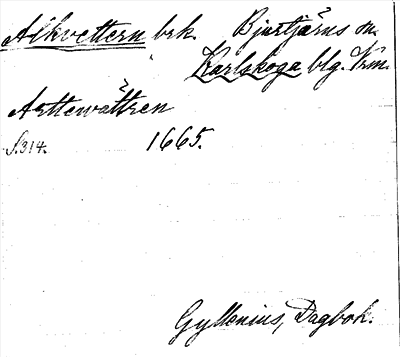 Alkvettern brk. Bjurtjärns sn.
Karlskoga blg. Vrm.
Arttewåttren
S. 314. 1665.
Gyllenius, Dagbok.